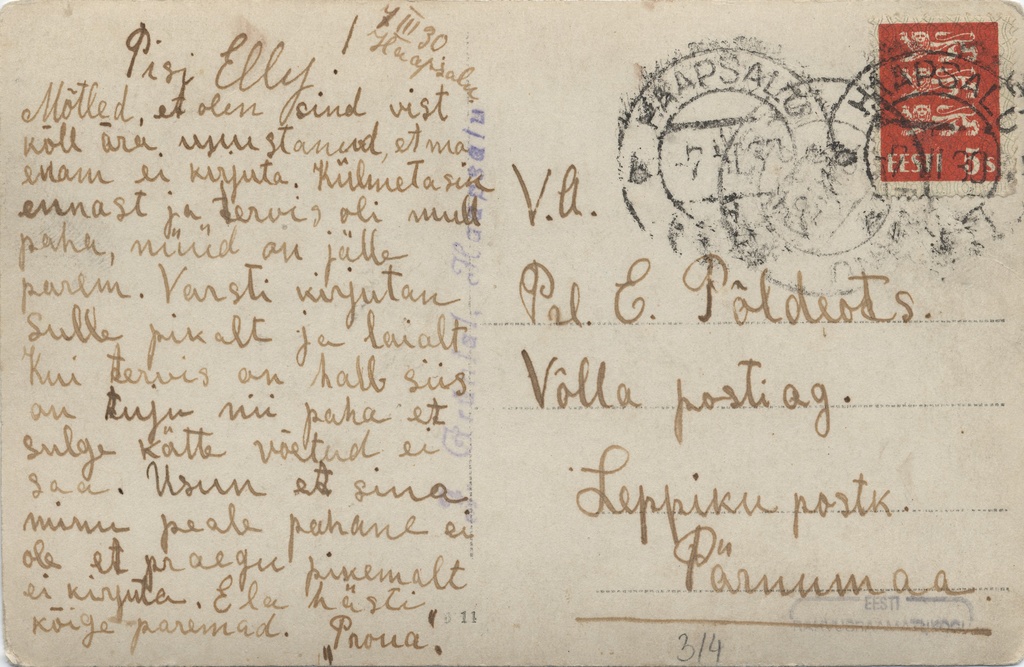 7 III 30
Haapsalu.
Pisj Elly.
Mõtled, et olen sind vist
kõll ära unustanud, et ma
enam ei kirjuta. Külmetasin
ennast ja tervis oli mull
paha, nüüd on jälle
parem. Varsti kirjutan
Sulle pikalt ja laialt
Kui tervis on halb siis
on tuju nii paha et
sulge kätte võetud ei
saa. Usun et sina
minu peale pahane ei
ole et praegu pikemalt
ei kirjuta. Ela hästi
kõige paremad. "Proua".
Haapsalu
11
HAAPSALU
HAAPSALU
EESTI 5 s
V.A.
Prl. E. Põldeots.
Võlla postiag.
Leppiku postk.
Pärnumaa.
EESTI
3/4